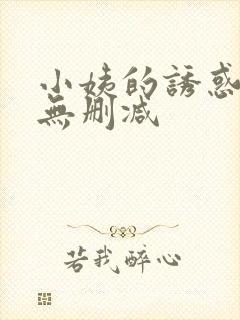 小姨的誘惑
無删减
若我醉心